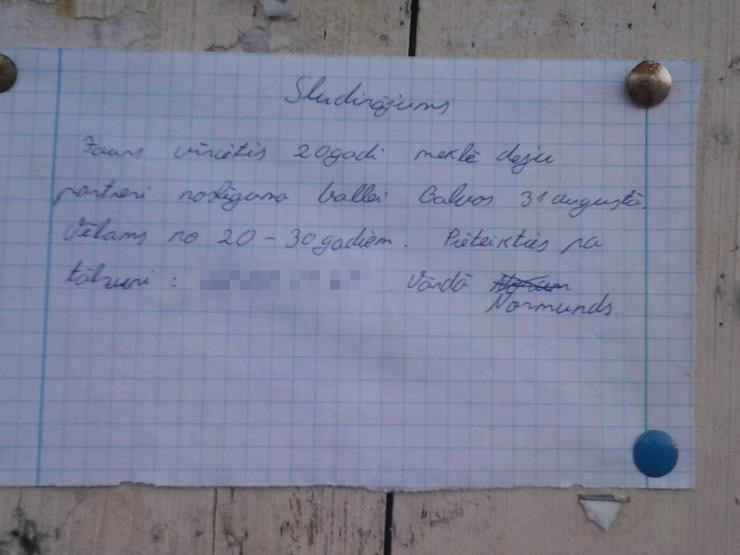 Sludinājums
Jauns vīrietis 20gadi meklē deju
partneri noslēguma ballei Balvos 31 augustā,
Vēlams no 20 - 30 gadiem. Pieteikties pa
tālruni : Vārdā
Normunds.